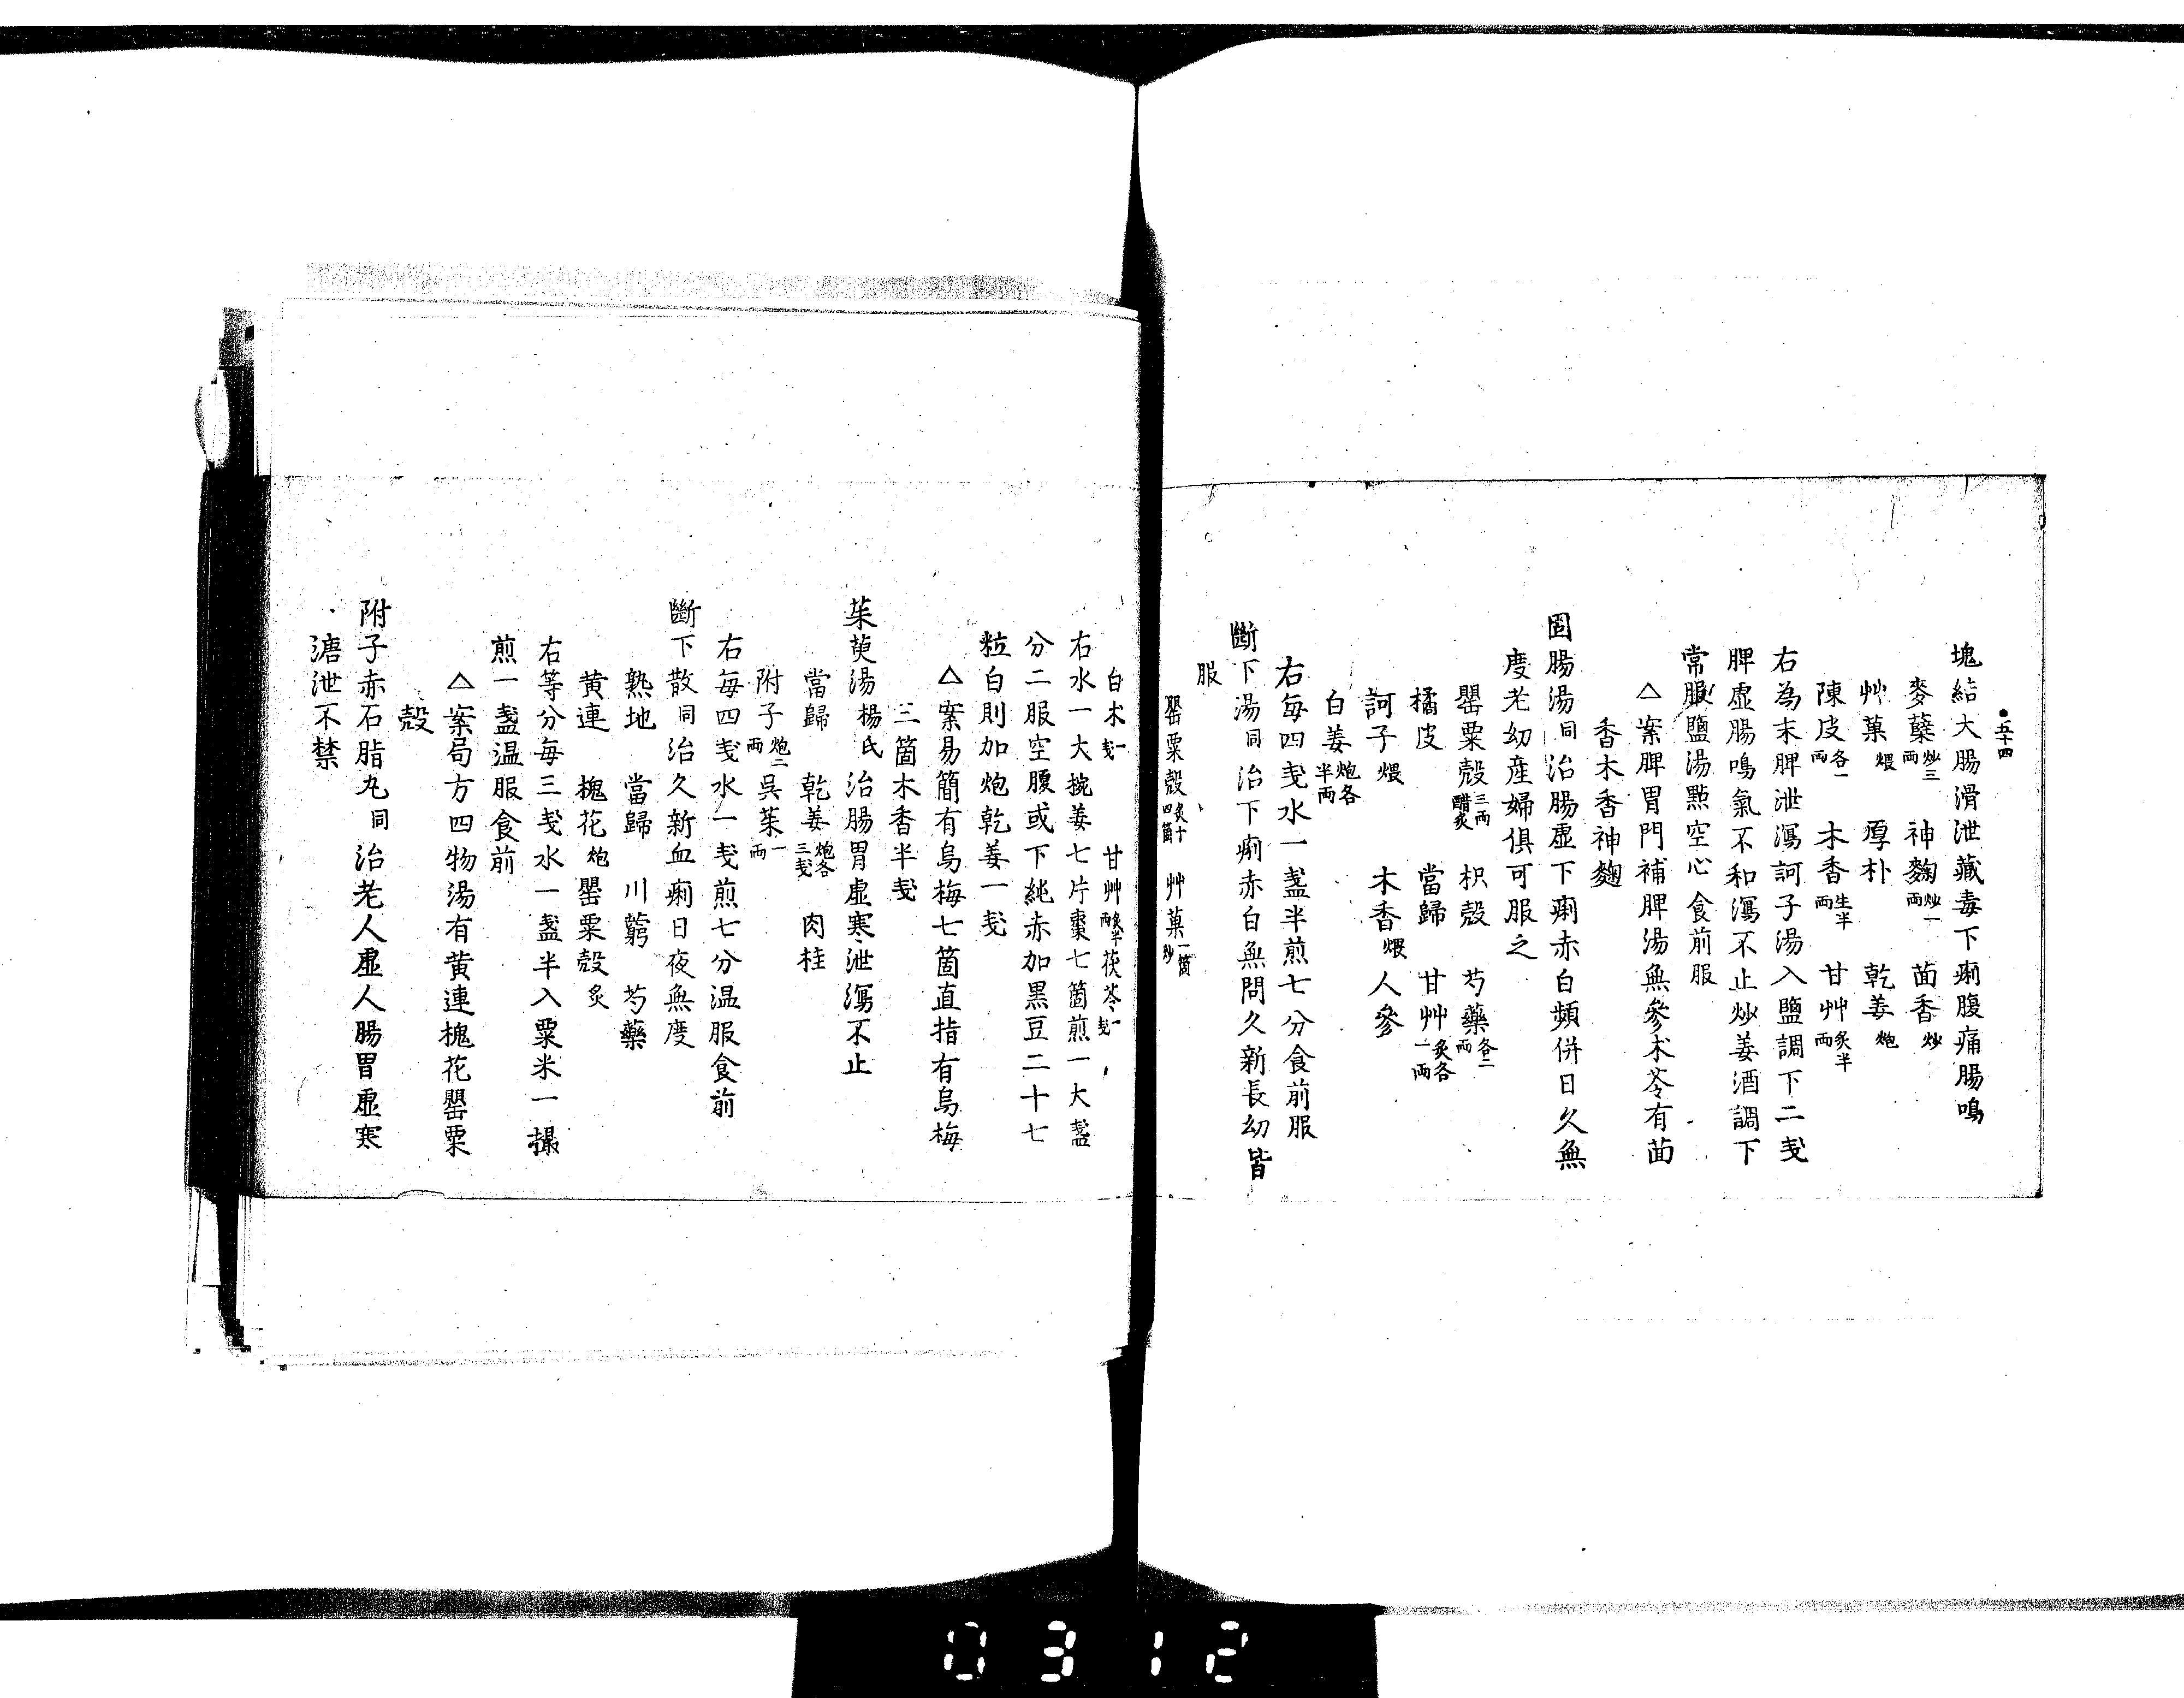 五十四
塊結大腸滑泄藏毒下痢腹痛腸鳴
麥蘖炒三両　神麴炒一両　茴香炒
艸菓煨　厚朴　乾姜炮
陳皮各一両　木香生半両　甘艸炙半両
右為末脾泄瀉訶子湯入鹽調下二戔
脾虚腸鳴氣不和瀉不止炒姜酒調下
常服鹽湯㸃空心食前服
△案脾胃門補脾湯無參朮苓有茴
香木香神麴
固腸湯同治腸虚下痢赤白頻併日久無
度老幼産婦俱可服之
罌粟殻三両醋炙　枳殻　芍藥各二両
橘皮　當歸　甘艸炙各一両
訶子煨　木香煨　人參
白姜炮各半両
右每四戔水一盞半煎七分食前服
斷下湯同治下痢赤白無問久新長幼皆
服
罌粟殻炙十四箇　艸菓一箇炒
白朮一戔　甘艸炙半両　茯苓一戔
右水一大椀姜七片棗七箇煎一大盞
分二服空腹或下純赤加黒豆二十七
粒白則加炮乾姜一戔
△案易簡有烏梅七箇直指有烏梅
三箇木香半戔
茱萸湯楊氏治腸胃虚寒泄瀉不止
當歸　乾姜炮各三戔　肉桂
附子炮二両　呉茱一両
右每四戔水一戔煎七分温服食前
斷下散同治久新血痢日夜無度
熟地　當歸　川藭　芍藥
黄連　槐花炮　罌粟殻炙
右等分每三戔水一盞半入粟米一撮
煎一盞温服食前
△案局方四物湯有黄連槐花罌粟
殻
附子赤石脂丸同治老人虚人腸胃虚寒
溏泄不禁
0312